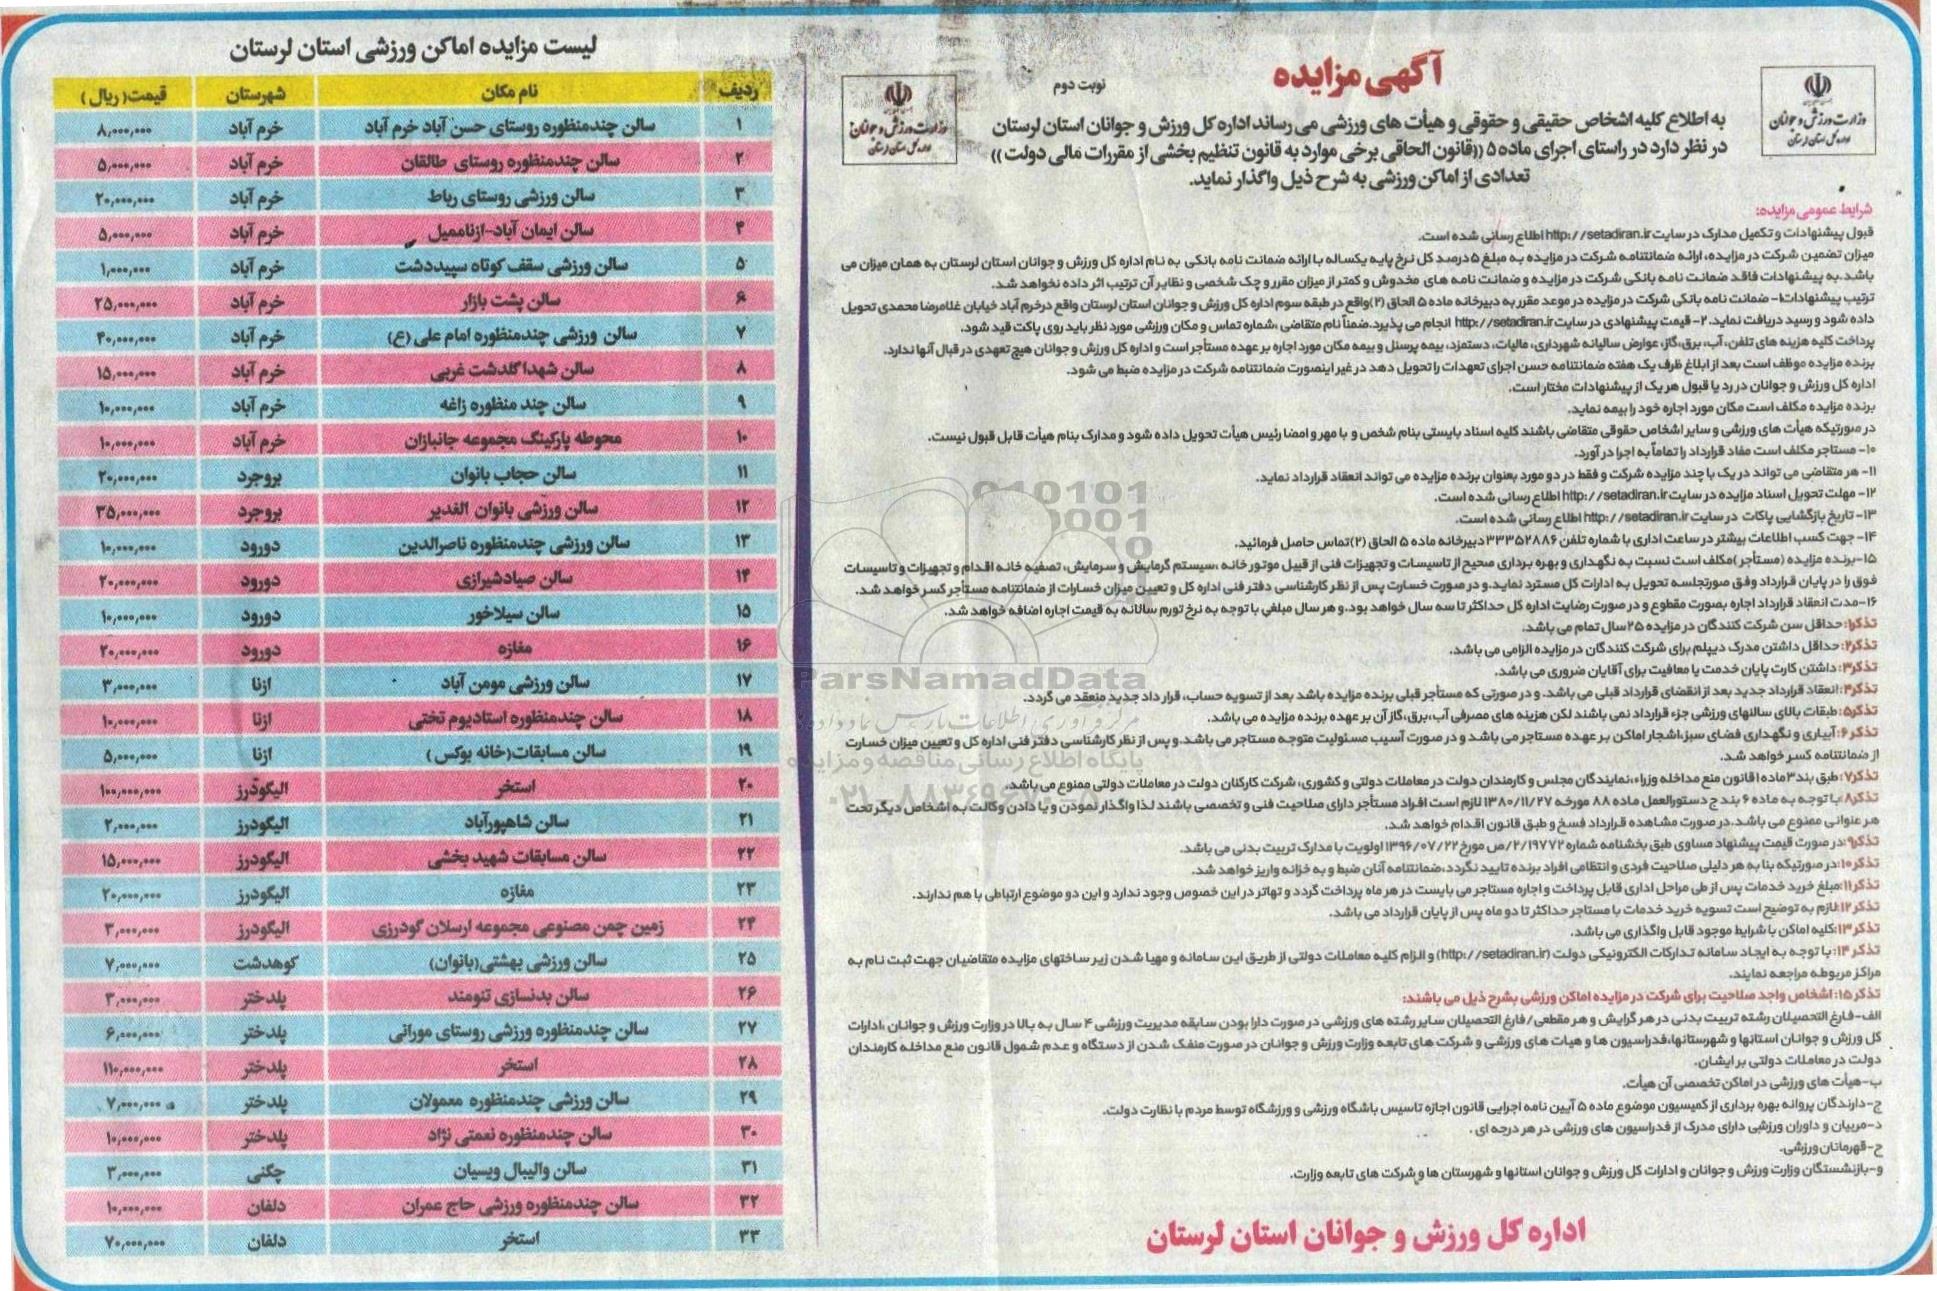 آگهی مزایده
نوبت دوم
وزارت ورزش و جوانان
اداره کل استان لرستان
وزارت ورزش و جوانان
اداره کل استان لرستان
به اطلاع کلیه اشخاص حقیقی و حقوقی و هیأت های ورزشی می رساند اداره کل ورزش و جوانان استان لرستان
در نظر دارد در راستای اجرای ماده ۵ ((قانون الحاقی برخی موارد به قانون تنظیم بخشی از مقررات مالی دولت ))
تعدادی از اماکن ورزشی به شرح ذیل واگذار نماید.
شرایط عمومی مزایده:
قبول پیشنهادات و تکمیل مدارک در سایت http://setadiran.ir اطلاع رسانی شده است.
میزان تضمین شرکت در مزایده، ارائه ضمانتنامه شرکت در مزایده به مبلغ ۵ درصد کل نرخ پایه یکساله با ارائه ضمانت نامه بانکی به نام اداره کل ورزش و جوانان استان لرستان به همان میزان می
باشد.به پیشنهادات فاقد ضمانت نامه بانکی شرکت در مزایده و ضمانت نامه های مخدوش و کمتر از میزان مقرر و چک شخصی و نظایر آن ترتیب اثر داده نخواهد شد.
ترتیب پیشنهادات:۱- ضمانت نامه بانکی شرکت در مزایده در موعد مقرر به دبیرخانه ماده ۵ الحاق (۲)واقع در طبقه سوم اداره کل ورزش و جوانان استان لرستان واقع درخرم آباد خیابان غلامرضا محمدی تحویل
داده شود و رسید دریافت نماید.۲- قیمت پیشنهادی در سایت http://setadiran.ir انجام می پذیرد.ضمناً نام متقاضی ،شماره تماس و مکان ورزشی مورد نظر باید روی پاکت قید شود.
پرداخت کلیه هزینه های تلفن، آب، برق،گاز، عوارض سالیانه شهرداری، مالیات، دستمزد، بیمه پرسنل و بیمه مکان مورد اجاره بر عهده مستأجر است و اداره کل ورزش و جوانان هیچ تعهدی در قبال آنها ندارد.
برنده مزایده موظف است بعد از ابلاغ ظرف یک هفته ضمانتنامه حسن اجرای تعهدات را تحویل دهد در غیر اینصورت ضمانتنامه شرکت در مزایده ضبط می شود.
اداره کل ورزش و جوانان در رد یا قبول هر یک از پیشنهادات مختار است.
برنده مزایده مکلف است مکان مورد اجاره خود را بیمه نماید.
در صورتیکه هیأت های ورزشی و سایر اشخاص حقوقی متقاضی باشند کلیه اسناد بایستی بنام شخص و با مهر و امضا رئیس هیأت تحویل داده شود و مدارک بنام هیأت قابل قبول نیست.
۱۰- مستاجر مکلف است مفاد قرارداد را تماماً به اجرا در آورد.
۱۱- هر متقاضی می تواند در یک یا چند مزایده شرکت و فقط در دو مورد بعنوان برنده مزایده می تواند انعقاد قرارداد نماید.
۱۲- مهلت تحویل اسناد مزایده در سایت http://setadiran.ir اطلاع رسانی شده است.
۱۳- تاریخ بازگشایی پاکات در سایت http://setadiran.ir اطلاع رسانی شده است.
۱۴- جهت کسب اطلاعات بیشتر در ساعت اداری با شماره تلفن ۳۳۳۵۲۸۸۶دبیرخانه ماده ۵ الحاق (۲)تماس حاصل فرمائید.
۱۵-برنده مزایده (مستأجر )مکلف است نسبت به نگهداری و بهره برداری صحیح از تاسیسات و تجهیزات فنی از قبیل موتور خانه ،سیستم گرمایش و سرمایش، تصفیه خانه اقدام و تجهیزات و تاسیسات
فوق را در پایان قرارداد وفق صورتجلسه تحویل به ادارات کل مسترد نماید.و در صورت خسارت پس از نظر کارشناسی دفتر فنی اداره کل و تعیین میزان خسارات از ضمانتنامه مستأجر کسر خواهد شد.
۱۶-مدت انعقاد قرارداد اجاره بصورت مقطوع و در صورت رضایت اداره کل حداکثر تا سه سال خواهد بود.و هر سال مبلغی با توجه به نرخ تورم سالانه به قیمت اجاره اضافه خواهد شد.
تذکر۱: حداقل سن شرکت کنندگان در مزایده ۲۵سال تمام می باشد.
تذکر۲: حداقل داشتن مدرک دیپلم برای شرکت کنندگان در مزایده الزامی می باشد.
تذکر۳: داشتن کارت پایان خدمت یا معافیت برای آقایان ضروری می باشد.
تذکر۴: انعقاد قرارداد جدید بعد از انقضای قرارداد قبلی می باشد. و در صورتی که مستأجر قبلی برنده مزایده باشد بعد از تسویه حساب، قرار داد جدید منعقد می گردد.
تذکر۵: طبقات بالای سالنهای ورزشی جزء قرارداد نمی باشند لکن هزینه های مصرفی آب،برق،گاز آن بر عهده برنده مزایده می باشد.
تذکر۶: آبیاری و نگهداری فضای سبز،اشجار اماکن بر عهده مستاجر می باشد و در صورت آسیب مسئولیت متوجه مستاجر می باشد.و پس از نظر کارشناسی دفتر فنی اداره کل و تعیین میزان خسارت
از ضمانتنامه کسر خواهد شد.
تذکر۷: طبق بند۳ماده۱قانون منع مداخله وزراء،نمایندگان مجلس و کارمندان دولت در معاملات دولتی و کشوری، شرکت کارکنان دولت در معاملات دولتی ممنوع می باشد.
تذکر۸:با توجه به ماده ۶ بند ج دستورالعمل ماده ۸۸ مورخه ۱۳۸۰/۱۱/۲۷ لازم است افراد مستأجر دارای صلاحیت فنی و تخصصی باشند لذا واگذار نمودن و یا دادن وکالت به اشخاص دیگر تحت
هر عنوانی ممنوع می باشد.در صورت مشاهده قرارداد فسخ و طبق قانون اقدام خواهد شد.
تذکر۹:در صورت قیمت پیشنهاد مساوی طبق بخشنامه شماره ۲/۱۹۷۷۲/ص مورخ ۱۳۹۶/۰۷/۲۲ اولویت با مدارک تربیت بدنی می باشد.
تذکر۱۰:در صورتیکه بنا به هر دلیلی صلاحیت فردی و انتظامی افراد برنده تایید نگردد،ضمانتنامه آنان ضبط و به خزانه واریز خواهد شد.
تذکر۱۱:مبلغ خرید خدمات پس از طی مراحل اداری قابل پرداخت و اجاره مستاجر می بایست در هر ماه پرداخت گردد و تهاتر در این خصوص وجود ندارد و این دو موضوع ارتباطی با هم ندارند.
تذکر۱۲:لازم به توضیح است تسویه خرید خدمات با مستاجر حداکثر تا دو ماه پس از پایان قرارداد می باشد.
تذکر۱۳:کلیه اماکن با شرایط موجود قابل واگذاری می باشد.
تذکر۱۴: با توجه به ایجاد سامانه تدارکات الکترونیکی دولت (http://setadiran.ir) و الزام کلیه معاملات دولتی از طریق این سامانه و مهیا شدن زیر ساختهای مزایده متقاضیان جهت ثبت نام به
مراکز مربوطه مراجعه نمایند.
تذکر ۱۵: اشخاص واجد صلاحیت برای شرکت در مزایده اماکن ورزشی بشرح ذیل می باشند:
الف-فارغ التحصیلان رشته تربیت بدنی در هر گرایش و هر مقطعی/فارغ التحصیلان سایر رشته های ورزشی در صورت دارا بودن سابقه مدیریت ورزشی ۴ سال به بالا در وزارت ورزش و جوانان ،ادارات
کل ورزش و جوانان استانها و شهرستانها،فدراسیون ها و هیات های ورزشی و شرکت های تابعه وزارت ورزش و جوانان در صورت منفک شدن از دستگاه و عدم شمول قانون منع مداخله کارمندان
دولت در معاملات دولتی بر ایشان.
ب-هیأت های ورزشی در اماکن تخصصی آن هیأت.
ج-دارندگان پروانه بهره برداری از کمیسیون موضوع ماده ۵ آیین نامه اجرایی قانون اجازه تاسیس باشگاه ورزشی و ورزشگاه توسط مردم با نظارت دولت.
د-مربیان و داوران ورزشی دارای مدرک از فدراسیون های ورزشی در هر درجه ای .
ح-قهرمانان ورزشی.
و-بازنشستگان وزارت ورزش و جوانان و ادارات کل ورزش و جوانان استانها و شهرستان ها و شرکت های تابعه وزارت.
اداره کل ورزش و جوانان استان لرستان
لیست مزایده اماکن ورزشی استان لرستان
ردیف نام مکان شهرستان قیمت( ریال )
۱ سالن چندمنظوره روستای حسن آباد خرم آباد خرم آباد ۸,۰۰۰,۰۰۰
۲ سالن چندمنظوره روستای طالقان خرم آباد ۵,۰۰۰,۰۰۰
۳ سالن ورزشی روستای رباط خرم آباد ۲۰,۰۰۰,۰۰۰
۴ سالن ایمان آباد-ازناممیل خرم آباد ۵,۰۰۰,۰۰۰
۵ سالن ورزشی سقف کوتاه سپیددشت خرم آباد ۱,۰۰۰,۰۰۰
۶ سالن پشت بازار خرم آباد ۲۵,۰۰۰,۰۰۰
۷ سالن ورزشی چندمنظوره امام علی (ع) خرم آباد ۴۰,۰۰۰,۰۰۰
۸ سالن شهدا گلدشت غربی خرم آباد ۱۵,۰۰۰,۰۰۰
۹ سالن چند منظوره زاغه خرم آباد ۱۰,۰۰۰,۰۰۰
۱۰ محوطه پارکینگ مجموعه جانبازان خرم آباد ۱۰,۰۰۰,۰۰۰
۱۱ سالن حجاب بانوان بروجرد ۲۰,۰۰۰,۰۰۰
۱۲ سالن ورزشی بانوان الغدیر بروجرد ۳۵,۰۰۰,۰۰۰
۱۳ سالن ورزشی چندمنظوره ناصرالدین دورود ۱۰,۰۰۰,۰۰۰
۱۴ سالن صیادشیرازی دورود ۲۰,۰۰۰,۰۰۰
۱۵ سالن سیلاخور دورود ۱۰,۰۰۰,۰۰۰
۱۶ مغازه دورود ۲۰,۰۰۰,۰۰۰
۱۷ سالن ورزشی مومن آباد ازنا ۳,۰۰۰,۰۰۰
۱۸ سالن چندمنظوره استادیوم تختی ازنا ۱۰,۰۰۰,۰۰۰
۱۹ سالن مسابقات(خانه بوکس ) ازنا ۵,۰۰۰,۰۰۰
۲۰ استخر الیگودرز ۱۰۰,۰۰۰,۰۰۰
۲۱ سالن شاهپورآباد الیگودرز ۲,۰۰۰,۰۰۰
۲۲ سالن مسابقات شهید بخشی الیگودرز ۱۵,۰۰۰,۰۰۰
۲۳ مغازه الیگودرز ۲۰,۰۰۰,۰۰۰
۲۴ زمین چمن مصنوعی مجموعه ارسلان گودرزی الیگودرز ۳,۰۰۰,۰۰۰
۲۵ سالن ورزشی بهشتی(بانوان) کوهدشت ۷,۰۰۰,۰۰۰
۲۶ سالن بدنسازی تنومند پلدختر ۳,۰۰۰,۰۰۰
۲۷ سالن چندمنظوره ورزشی روستای مورانی پلدختر ۶,۰۰۰,۰۰۰
۲۸ استخر پلدختر ۱۱۰,۰۰۰,۰۰۰
۲۹ سالن ورزشی چندمنظوره معمولان پلدختر ۷,۰۰۰,۰۰۰
۳۰ سالن چندمنظوره نعمتی نژاد پلدختر ۱۰,۰۰۰,۰۰۰
۳۱ سالن والیبال ویسیان چگنی ۳,۰۰۰,۰۰۰
۳۲ سالن چندمنظوره ورزشی حاج عمران دلفان ۱۰,۰۰۰,۰۰۰
۳۳ استخر دلفان ۷۰,۰۰۰,۰۰۰
ParsNamadData
پایگاه اطلاع رسانی مناقصه و مزایده